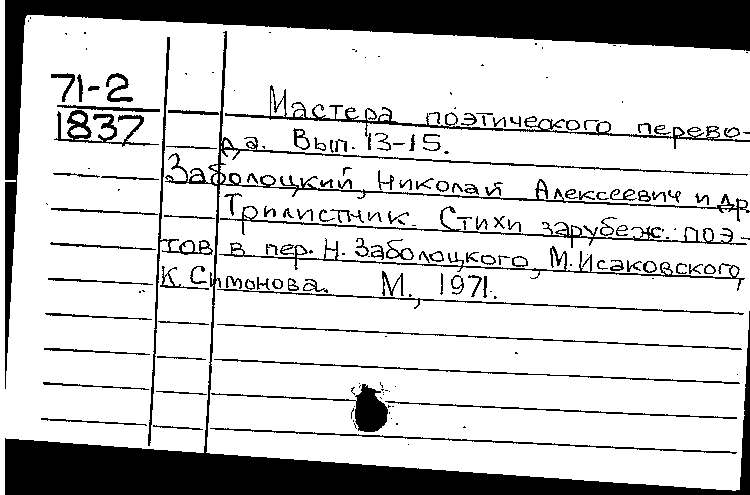 71-2
1837
Мастера поэтического перево-
да. Вып. 13-15.
Заболоцкий, Николай Алексеевич и др.
Трилистник. Стихи зарубеж. поэ-
тов в пер. Н. Заболоцкого, М. Исаковского,
К. Симонова. М., 1971.